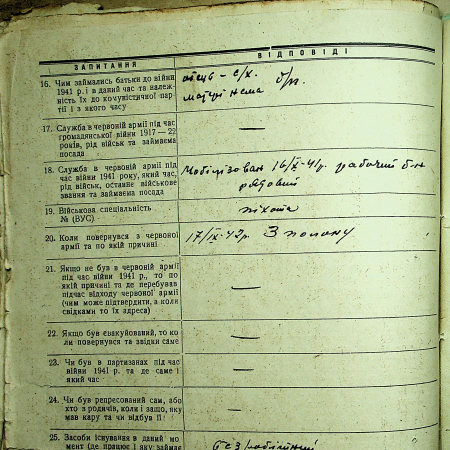 ЗАПИТАННЯ
ВІДПОВІДІ
16. Чим займались батьки до війни
1941 р. і в даний час та належ-
ність їх до комуністичної пар-
тії і з якого часу
с/х. б/п.
нема
17. Служба в червоній армії під час
громадянської війни 1917—22
років, рід військ та займаєма
посада
—
18. Служба в червоній армії під
час війни 1941 року, який час,
рід військ, останнє військове
звання та займаєма посада
Мобілізован 16/IX-41р. рабочий б-н
рядовий
19. Військова спеціальність
№ (ВУС)
піхота
20. Коли повернувся з червоної
армії та по якій причині
17/IX-42р. З полону
21. Якщо не був в червоній армії
під час війни 1941 р., то по
якій причині та де перебував
підчас відходу червоної армії
(чим може підтвердити, а коли
свідками то їх адреса)
—
22. Якщо був евакуйований, то ко
ли повернувся та звідки саме
—
23. Чи був в партизанах під час
війни 1941 р. та де саме і
який час
—
24. Чи був репресований сам, або
хто з родичів, коли і защо, яку
мав кару та чи відбув її
—
25. Засоби існування в даний мо
мент (де працює і яку займає